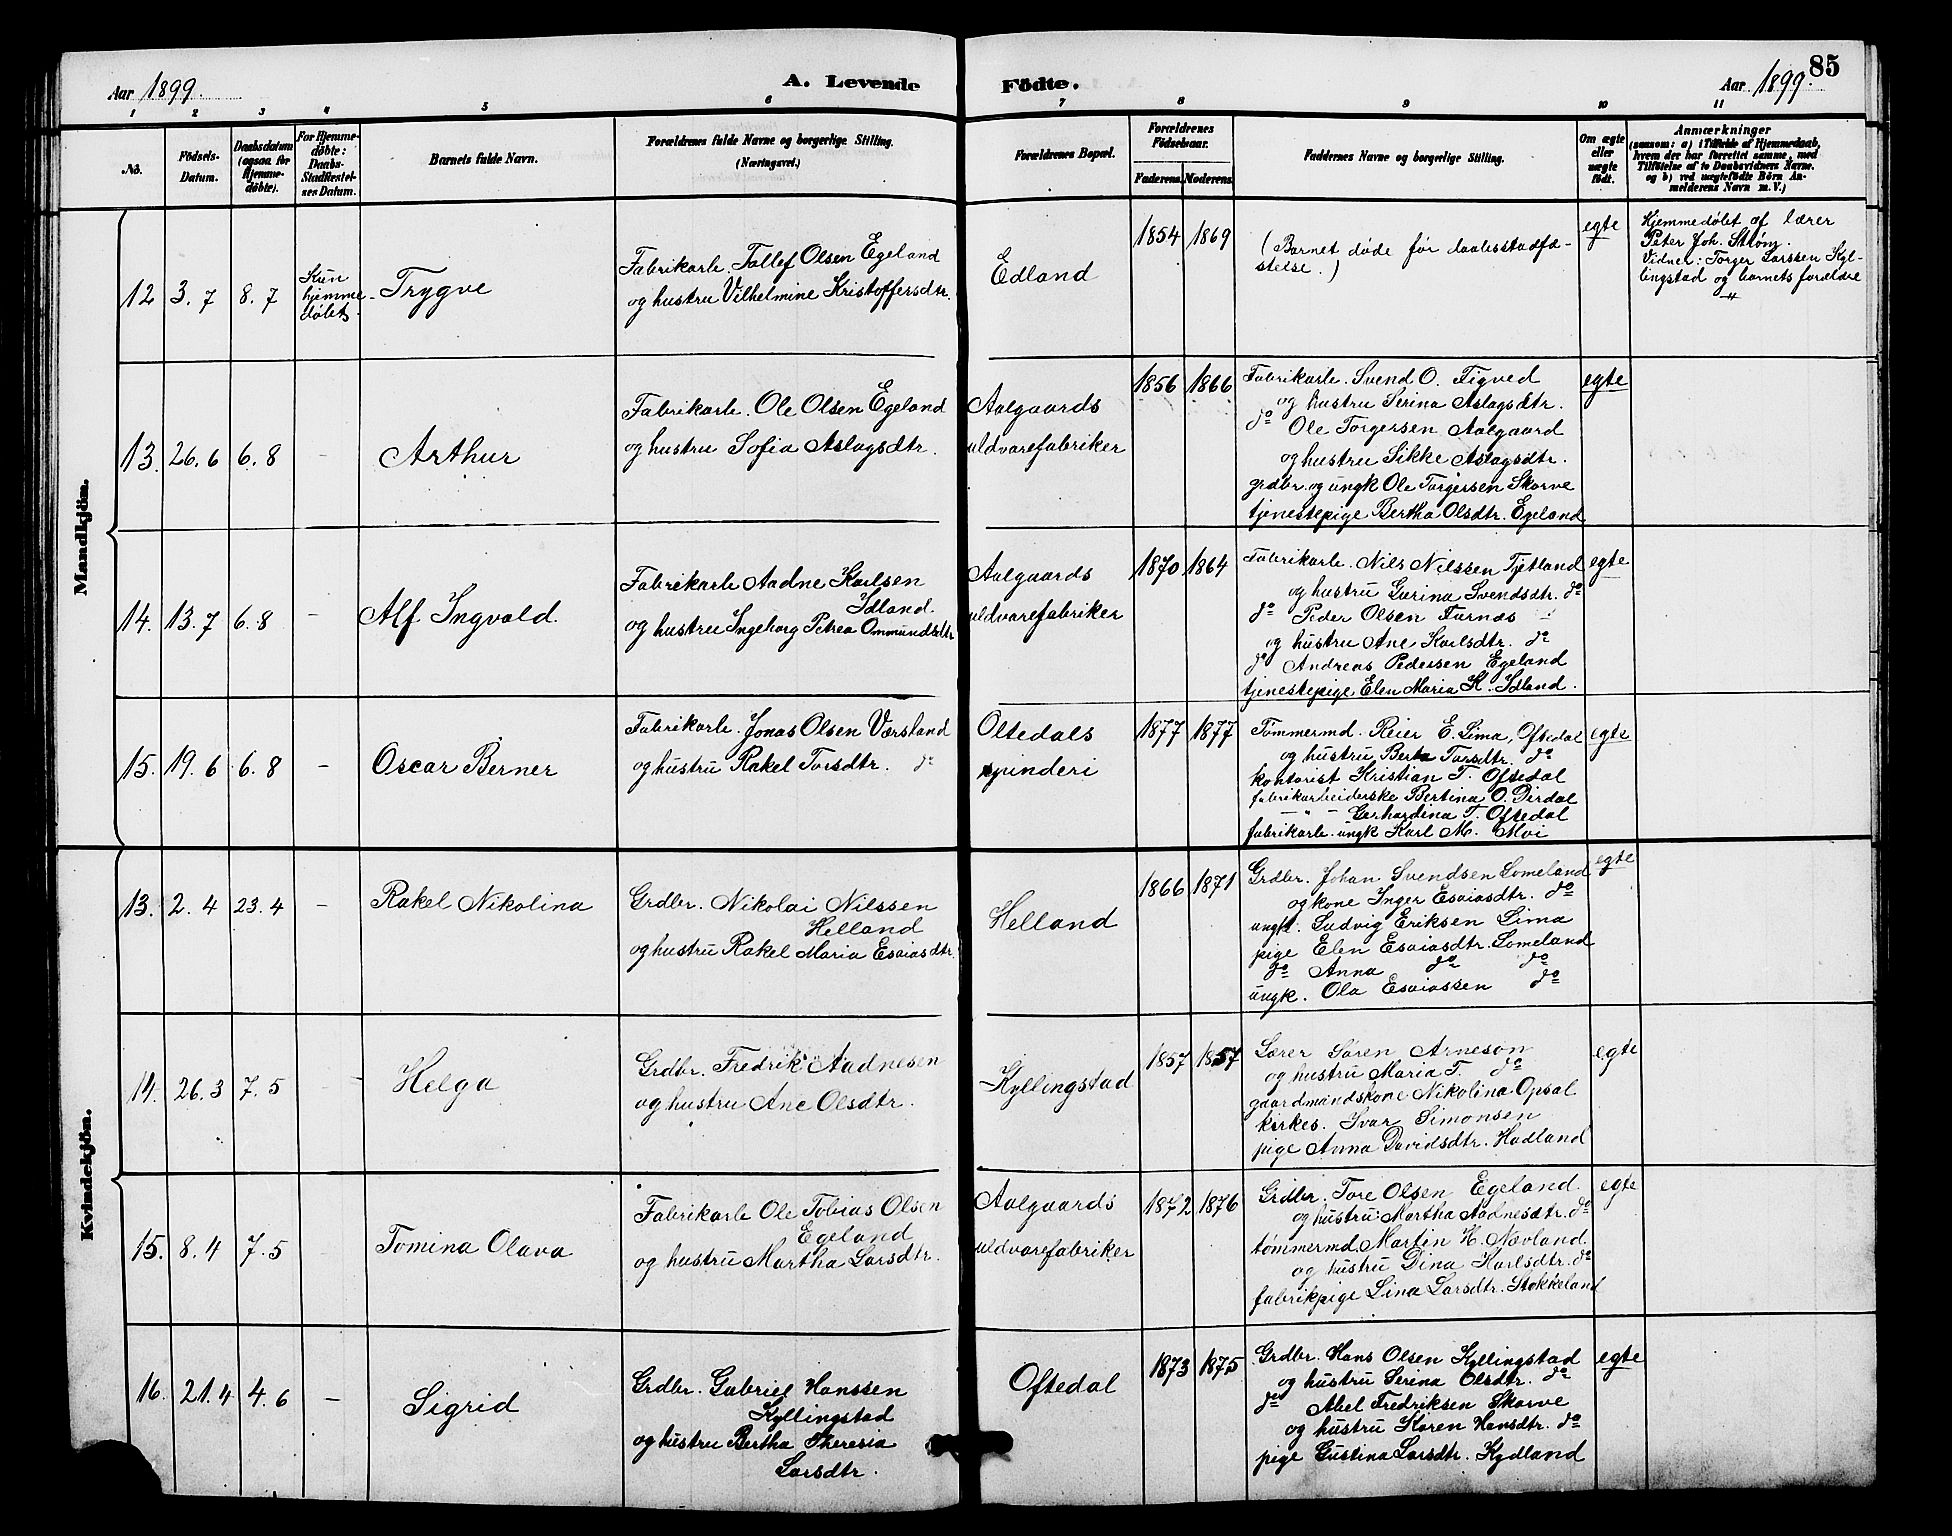 Aar 1899. A. Levende Födte. Aar 1899. 85
1 2 3 4 5 6 7 8 9 10 11
No.
Födsels-
Datum.
Daabsdatum
(ogsaa for
Hjemme-
döbte).
For Hjemme-
döbte:
Daabs-
Stadfæstel-
ses Datum.
Barnets fulde Navn.
Forældrenes fulde Navne og borgerlige Stilling.
(Næringsvei.)
Forældrenes Bopæl.
Forældrenes
Födselsaar.
Faderens. Moderens.
Faddernes Navne og borgerlige Stilling.
Om ægte
eller
uægte
födt.
Anmærkninger
(saasom: a) i Tilfælde af Hjemmedaab,
hvem der har forrettet samme, med
Tilföielse af to Daabsvidners Navne.
og b) ved uægtefödte Börn An-
melderens Navn m. V.)
Mandkjön.
12 3. 7 8. 7
Kun
hjemme-
døbt
Trygve
Fabrikarb. Tollef Olsen Egeland
og hustru Vilhelmine Kristoffersdtr.
Edland
1854 1869
(Barnet døde før daabsstadfæ-
stelse.)
egte
Hjemmedøbt af lærer
Peter Joh. Strøm.
Vidner: Torger Larssen Kyl-
lingstad og barnets forældre
13. 26. 6 6. 8 -
Arthur
Fabrikarb. Ole Olsen Egeland
og hustru Sofia Aslagsdtr.
Aalgaards
uldvarefabriker
1856 1866
Fabrikarb. Svend O. Figved
og hustru Serina Aslagsdtr.
do Ole Torgersen Aalgaard
og hustru Sikke Aslagsdtr.
grdbr. og ungk Ole Torgersen Skorve
tjenestepige Bertha Olsdtr. Egeland
egte
14. 13. 7 6. 8 -
Alf Ingvald.
Fabrikarb Aadne Karlsen
Idland.
og hustru Ingeborg Petrea Ommundsdtr
Aalgaards
uldvarefabriker
1870 1864
Fabrikarb. Nils Nilssen Tjetland
og hustru Gurina Svendsdtr. do
do Peder Olsen Furnæs
og hustru Ane Karlsdtr. do
do Andreas Pedersen Egeland
tjenestepige Elen Maria K. Idland.
egte
15. 19. 6 6. 8 -
Oscar Berner
Fabrikarb. Jonas Olsen Værsland
og hustru Rakel Torsdtr. do
Oltedals
spinderi
1877 1877
Tømmermd. Reier E. Lima, Oftedal
og hustru Berta Torsdtr. do
kontorist Kristian T. Oftedal
fabrikarbeiderske Bertina O. Dirdal
— " — Gerhardina T. Oftedal
fabrikarb. ungk Karl M. Moi
egte
Kvindekjön.
13. 2. 4 23. 4 -
Rakel Nikolina
Grdbr. Nikolai Nilssen
Helland
og hustru Rakel Maria Esaiasdtr.
Helland
1866 1871
Grdbr. Johan Svendsen Lomeland
og kone Inger Esaiasdtr. do
ungk. Ludvig Eriksen Lima
pige Elen Esaiasdtr. Lomeland
do Anna do do
ungk. Ola Esaiassen do
egte
14. 26. 3 7. 5 -
Helga
Grdbr. Fredrik Aadnesen
og hustru Ane Olsdtr.
Kyllingstad
1857 1857
Lærer Søren Arneson
og hustru Maria T. do
gaardmandskone Nikolina Opsal
kirkes. Ivar Simonsen
pige Anna Davidsdtr. Hadland
egte
15. 8. 4 7. 5
Tomina Olava
Fabrikarb Ole Tobias Olsen
Egeland
og hustru Martha Larsdtr.
Aalgaards
uldvarefabriker
1872 1876
Grdbr. Tore Olsen Egeland.
og hustru Martha Aadnesdtr. do
tømmermd. Martin H. Nævland.
og hustru Dina Karlsdtr. do
fabrikpige Lina Larsdtr. Stokkeland
egte
16. 21. 4 4. 6 -
Sigrid
Grdbr. Gabriel Hanssen
Kyllingstad
og hustru Bertha Theresia
Larsdtr.
Oftedal
1873 1875
Grdbr. Hans Olsen Kyllingstad
og hustru Serina Olsdtr. do
do Abel Fredriksen Skorve
og hustru Karen Hansdtr. do
pige Gustina Larsdtr. Kydland
egte